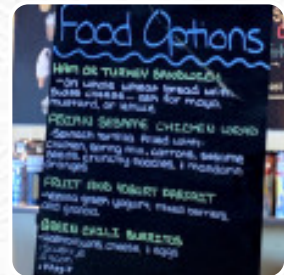 Food Options
HAM OR TURKEY SANDWICH
-on whole wheat bread with
swiss cheese - ask for mayo,
mustard, or
ASIAN SESAME CHICKEN WRAP
-Spinach tortilla filled with
chicken, spring mix, carrots, sesame
seeds, crunchy noodles, & mandarin
oranges
FRUIT AND YOGURT PARFAIT
-vanilla greek yogurt, mixed berries,
and granola
GREEN CHILI BURRITOS
cheese, & eggs